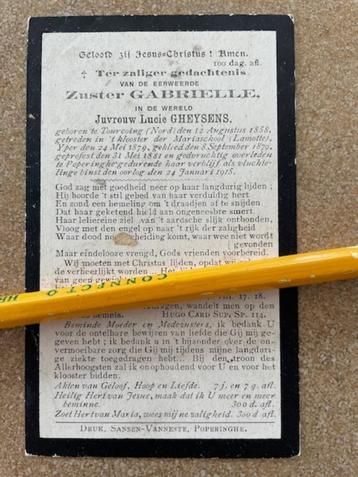 Geloofd zij Jesus-Christus ! Amen.
100 dag. afl.
† Ter zaliger gedachtenis
VAN DE EERWEERDE
Zuster GABRIELLE,
IN DE WERELD
Juvrouw Lucie GHEYSENS,
geboren te Tourcoing (Nord) den 12 Augustus 1858,
getreden in 't klooster der Mariaschool (Lamotte),
Yper den 24 Mei 1879, gekleed den 8 September 1879,
geprofest den 31 Mei 1881 en godvruchtig overleden
te Poperinghe gedurende haar verblijf als vluchte-
linge binst den oorlog den 24 Januari 1915.
God zag met goedheid neer op haar langdurig lijden ;
Hij hoorde 't stil gebed van haar verduldig hert
En zond een bemind vriend om 't draadjen af te snijden
Dat haar geketend hield aan ongeneesbre smert.
Haar leliereine ziel van 't aardsche slijk onthonden,
Vloog met den engel op van 't rijk der zaligheid
Waar dood noch scheiding komt, waar wee noch wordt
(gevonden
Maar eindelooze vreugd, Gods vrienden voorbereid.
Wij moeten met Christus lijden, opdat wij
de verheerlijkt worden ...
van geen
VIII. 17. 18.
wandelt men op den
hemels. HUGO CARD SUP. SP. 114.
Beminde Moeder en Medezusters, ik bedank U
voor de ontelbare liefde en zorgen die Gij mij
gegeven hebt; ik dank U in 't bijzonder over de on-
vermoeibare zorg die Gij mij tijdens mijne langdu-
rige ziekte toegedragen hebt... Bij den troon des
Allerhoogsten zal ik onophoudend voor U en voor het
klooster bidden.
Akten van Geloof, Hoop en Liefde. 7 j. en 7 q. afl.
Heilig Hert van Jesus, maak dat ik U meer en meer
beminne. 300 d. afl.
Zoet Hert van Maria, wees mijne zaligheid. 300 d. afl.
DRUK. SANSEN-VANNESTE, POPERINGHE.
CONNECT-O